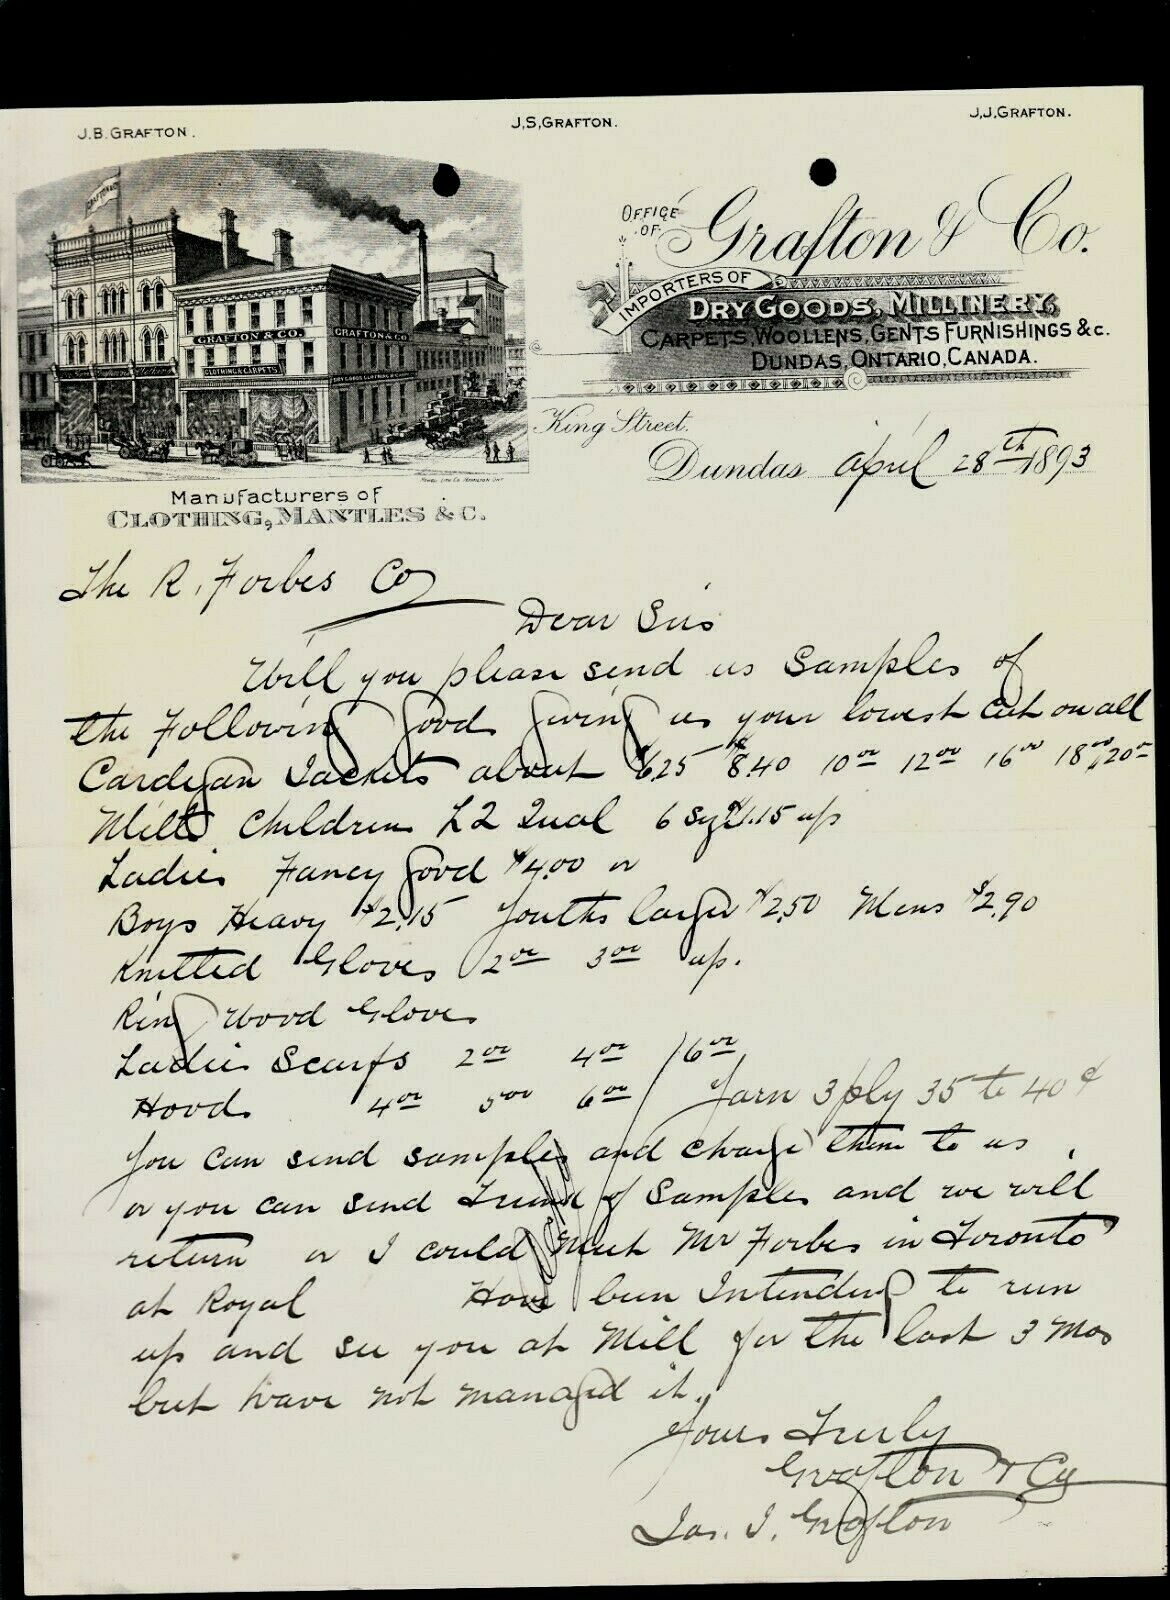 J.B. GRAFTON.
J,S,GRAFTON.
J,J,GRAFTON.
GRAFTON & CO.
GRAFTON & CO.
CLOTHING & CARPETS
DRY GOODS CLOTHING &
Manufacturers of
CLOTHING, MANTLES & C.
OFFICE OF
Grafton & Co.
IMPORTERS OF
DRY GOODS, MILLINERY,
CARPETS, WOOLLENS, GENTS FURNISHINGS & c.
DUNDAS, ONTARIO, CANADA.
King Street.
Dundas April 28th 1893
The R. Forbes Co
Dear Sirs
Will you please send us samples of
the Following Good Giving us your lowest cut on all
Cardigan Jackets about $6.25 $8.40 10 00 12 00 16 00 18 00 20 00
Mitts Childrens L2 Qual 6 Sz $1.15 up
Ladies Fancy Good $4.00 or
Boys Heavy $2.15 Youths larger $2.50 Mens $2.90
Knitted Gloves 2 00 3 00 up.
Ring Wood Gloves
Ladies Scarfs 2 00 4 00 6 00
Hoods 4 00 5 00 6 00 / Yarn 3 ply 35 to 40 ¢
You can send samples and charge them to us,
or you can send of samples and we will
return or I could Meet Mr Forbes in Toronto
at Royal Have been Intending to run
up and see you at Mill for the last 3 Mos
but have not managed it.
Yours Truly
Grafton & Co
Jas. J. Grafton